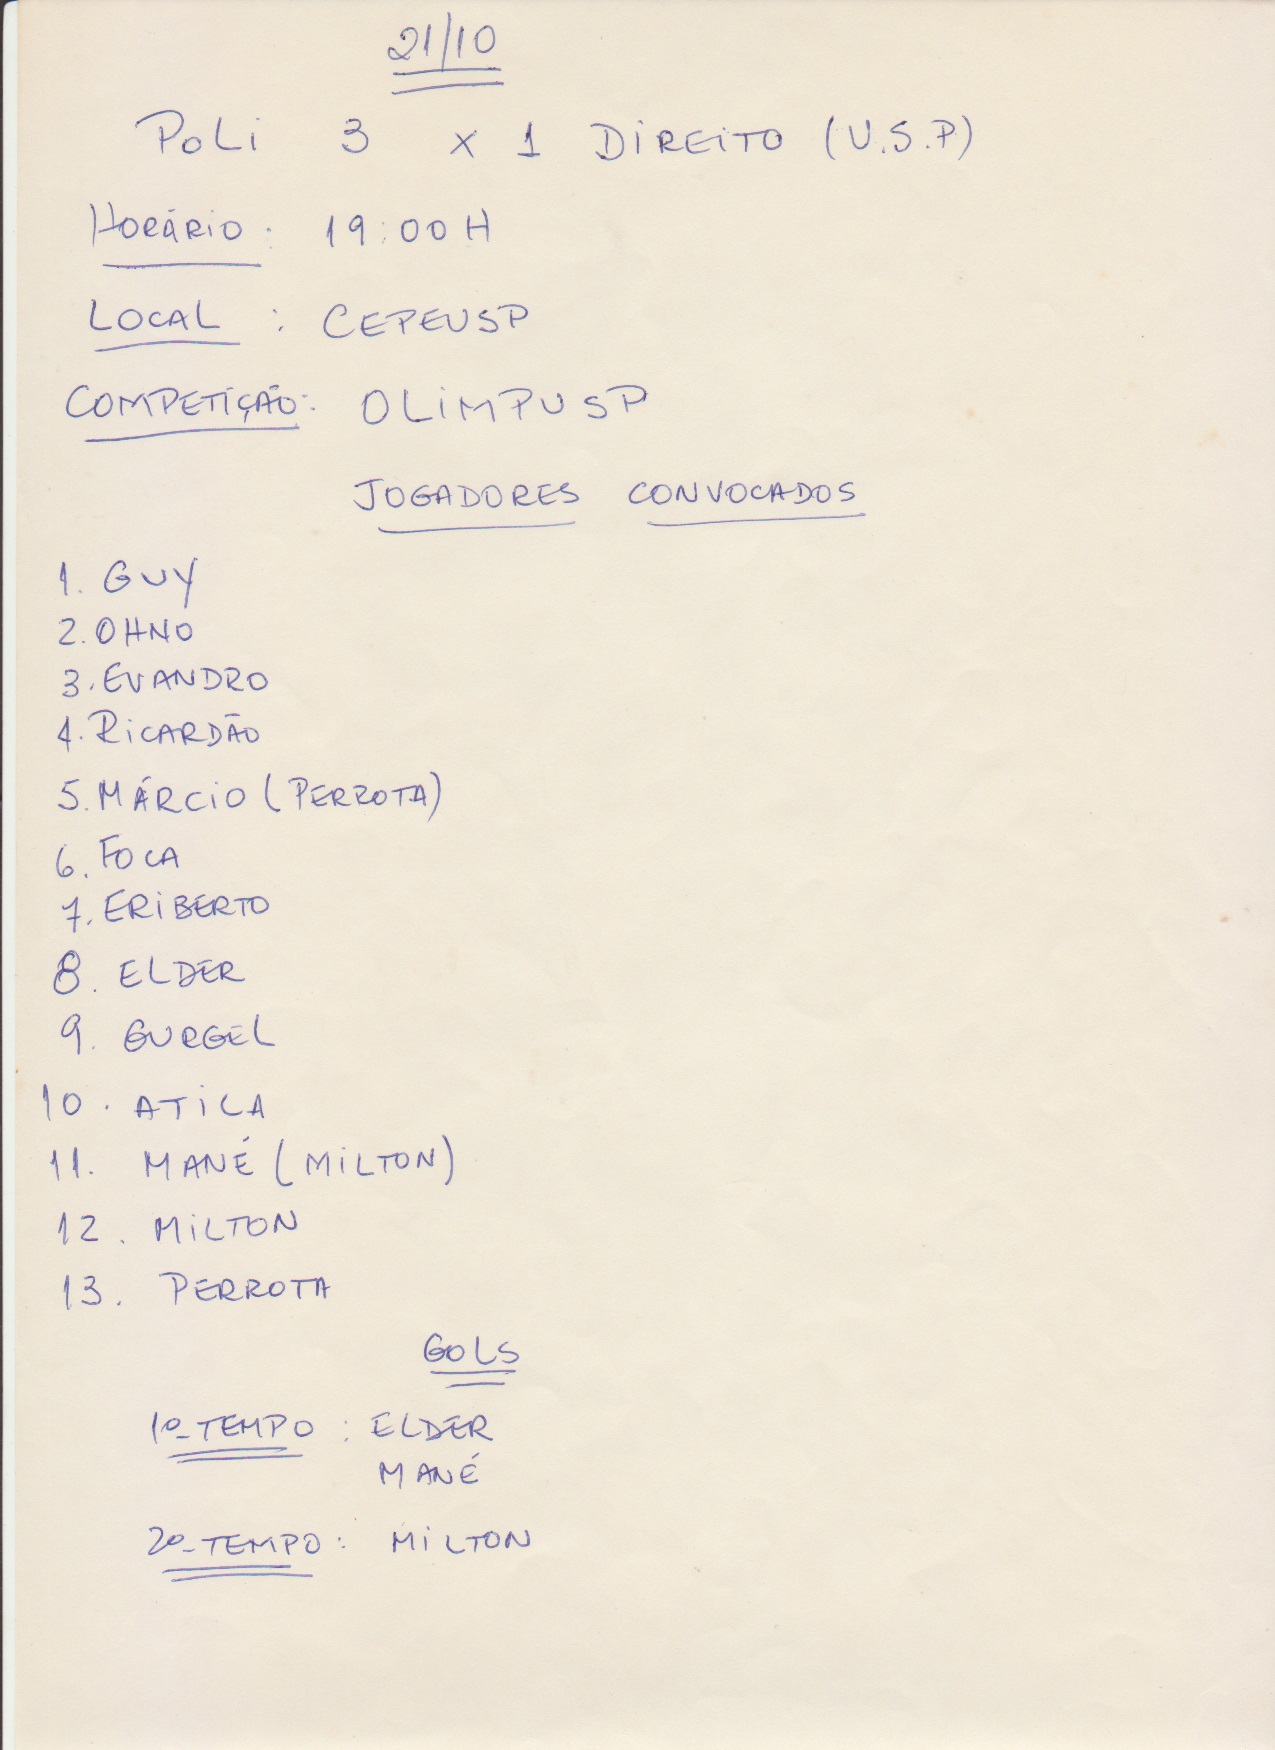 21/10
POLI 3 x 1 DIREITO (U.S.P)
HORÁRIO: 19:00 H
LOCAL : CEPEUSP
COMPETIÇÃO: OLIMPUSP
JOGADORES CONVOCADOS
1. GUY
2. OHNO
3. EVANDRO
4. RICARDÃO
5. MÁRCIO (PERROTA)
6. FOCA
7. ERIBERTO
8. ELDER
9. GURGEL
10. ATILA
11. MANÉ (MILTON)
12. MILTON
13. PERROTA
GOLS
1º TEMPO : ELDER
MANÉ
2º TEMPO : MILTON